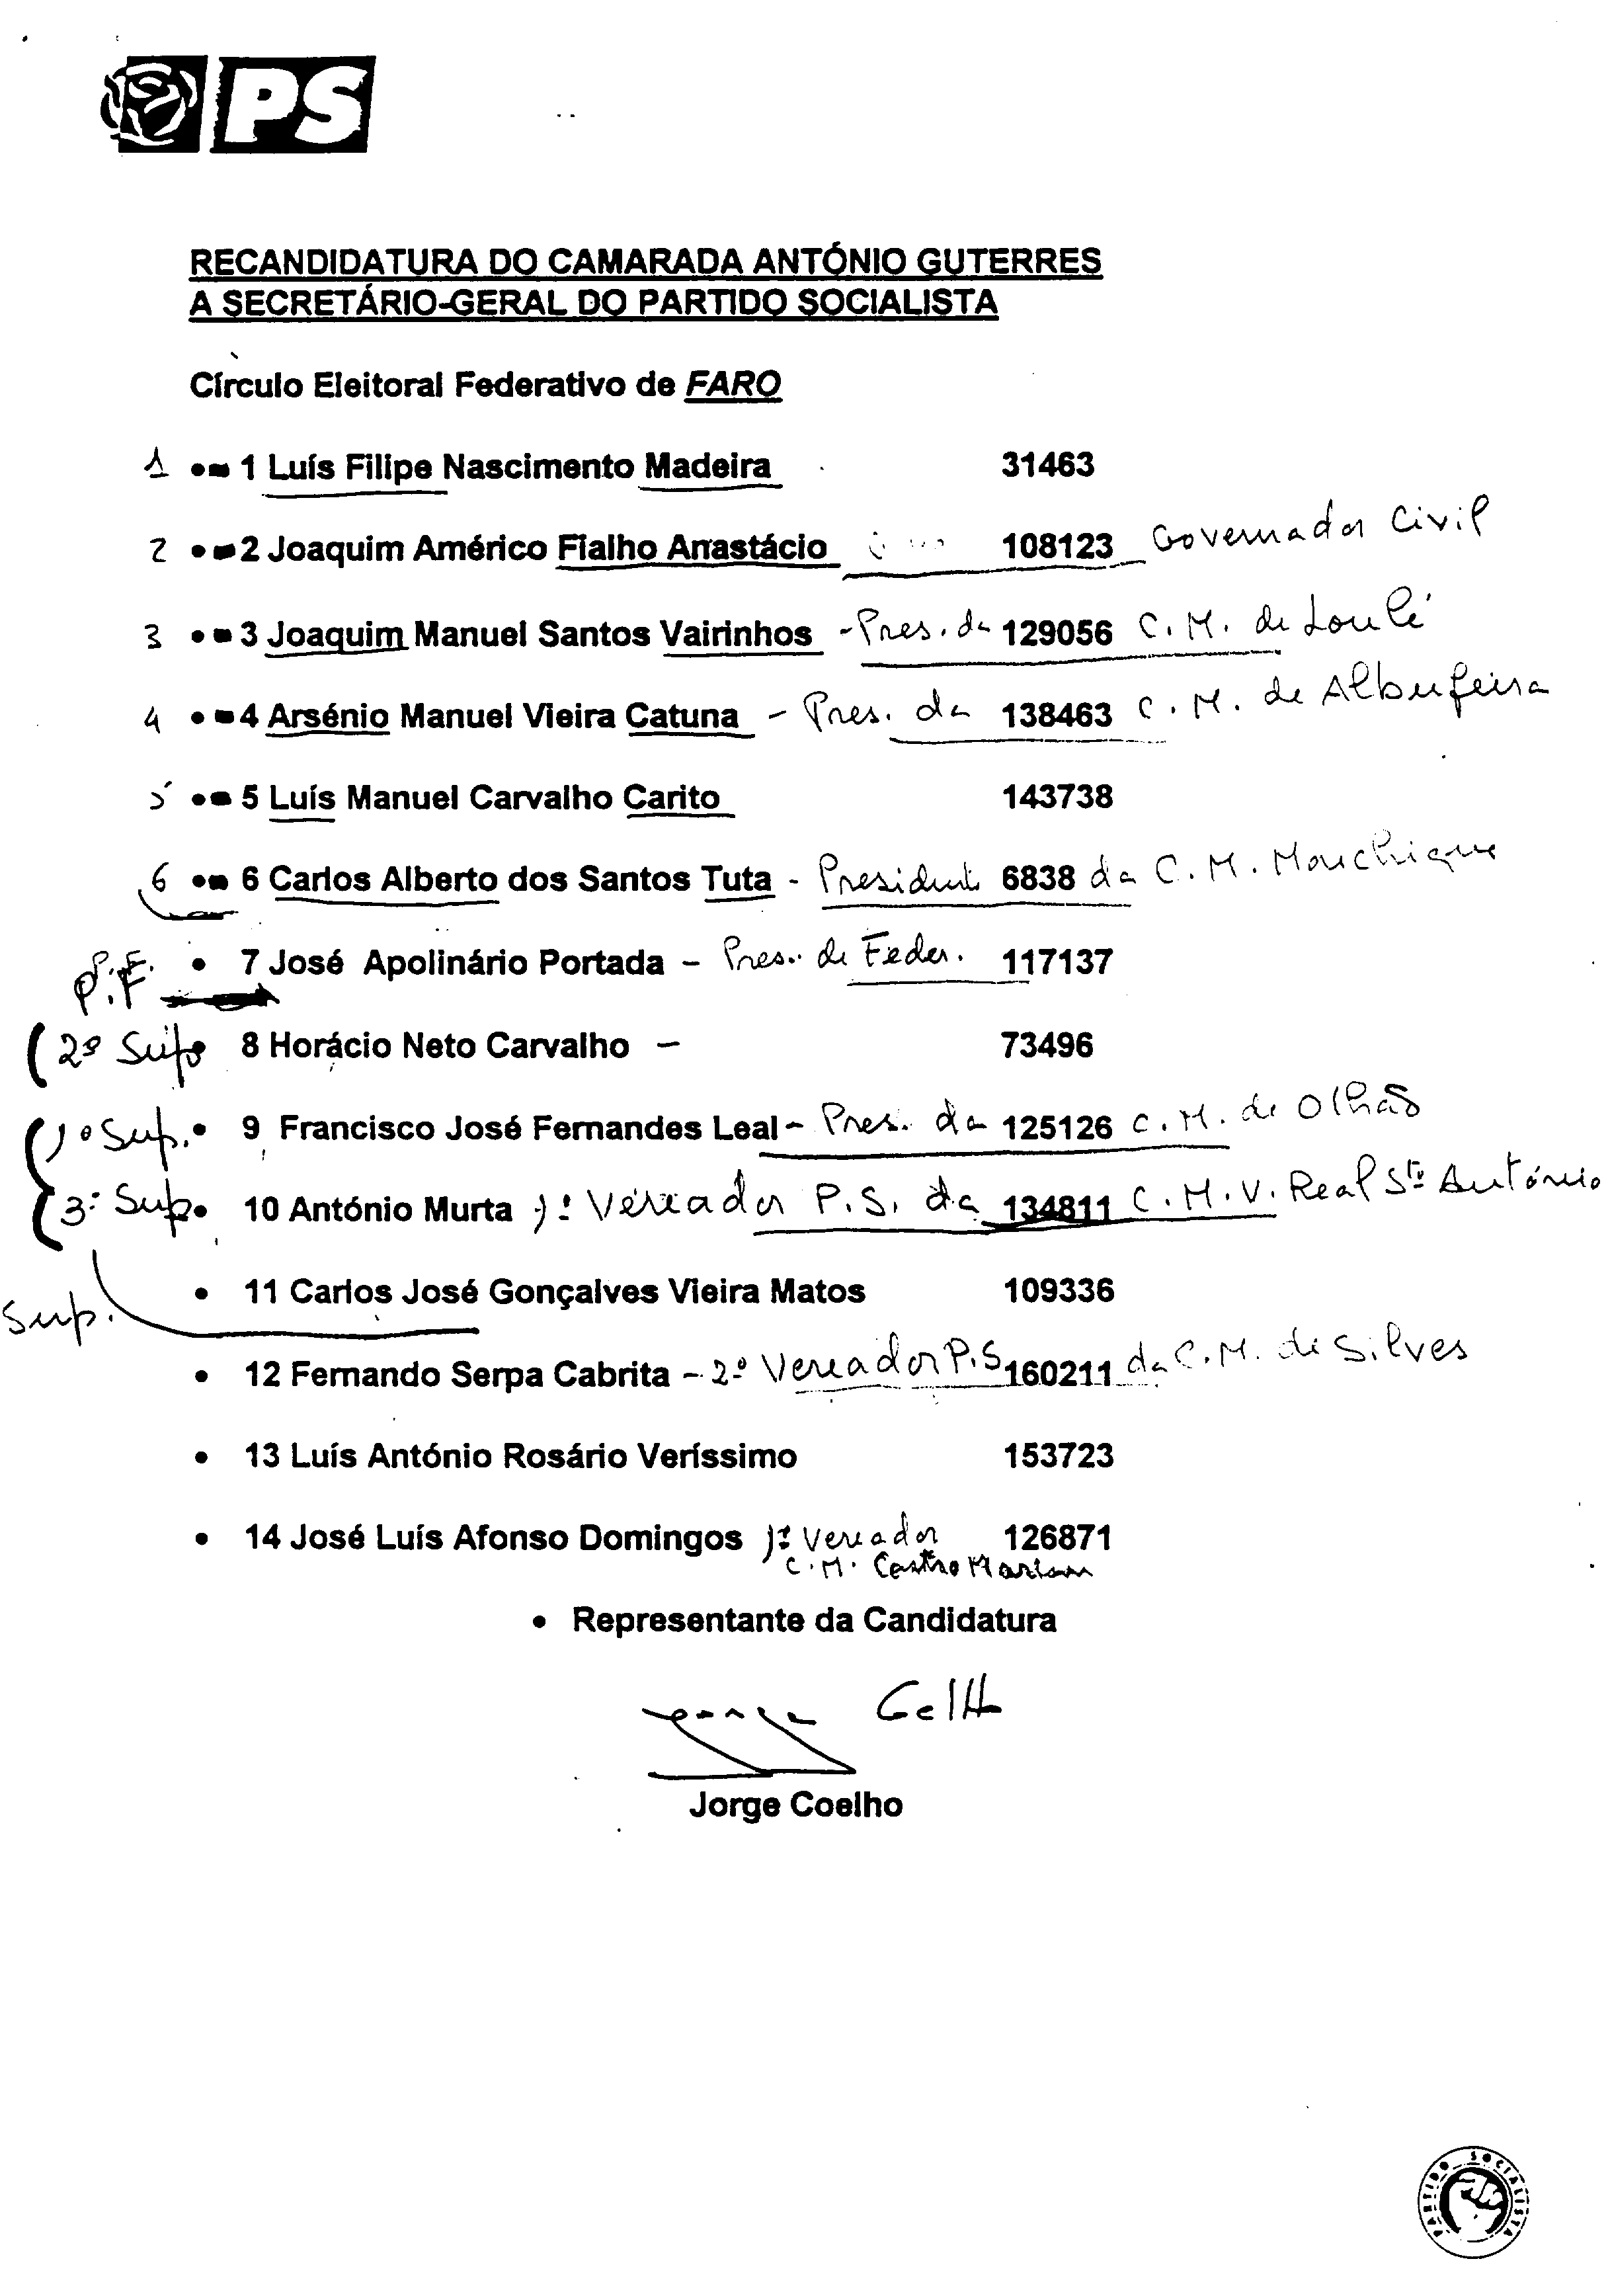 PS
RECANDIDATURA DO CAMARADA ANTÓNIO GUTERRES
A SECRETÁRIO-GERAL DO PARTIDO SOCIALISTA
Círculo Eleitoral Federativo de FARO
1 • 1 Luís Filipe Nascimento Madeira 31463
2 • 2 Joaquim Américo Fialho Anastácio 108123 Governador Civil
3 • 3 Joaquim Manuel Santos Vairinhos - Pres. da 129056 C. M. de Loulé
4 • 4 Arsénio Manuel Vieira Catuna - Pres. da 138463 C. M. de Albufeira
5 • 5 Luís Manuel Carvalho Carito 143738
6 • 6 Carlos Alberto dos Santos Tuta - Presidente 6838 da C. M. Monchique
P.F. • 7 José Apolinário Portada - Pres. de Feder. 117137
(2º Sup • 8 Horácio Neto Carvalho - 73496
(1º Sup. • 9 Francisco José Fernandes Leal - Pres. da 125126 C. M. de Olhão
(3º Sup • 10 António Murta 1º Vereador P.S. da 134811 C. M. V. Real Stº António
Sup. • 11 Carlos José Gonçalves Vieira Matos 109336
• 12 Fernando Serpa Cabrita - 2º Vereador P.S 160211 da C. M. de Silves
• 13 Luís António Rosário Veríssimo 153723
• 14 José Luís Afonso Domingos 1º Vereador 126871
C. M. Castro Marim
• Representante da Candidatura
Jorge Coelho
PARTIDO SOCIALISTA